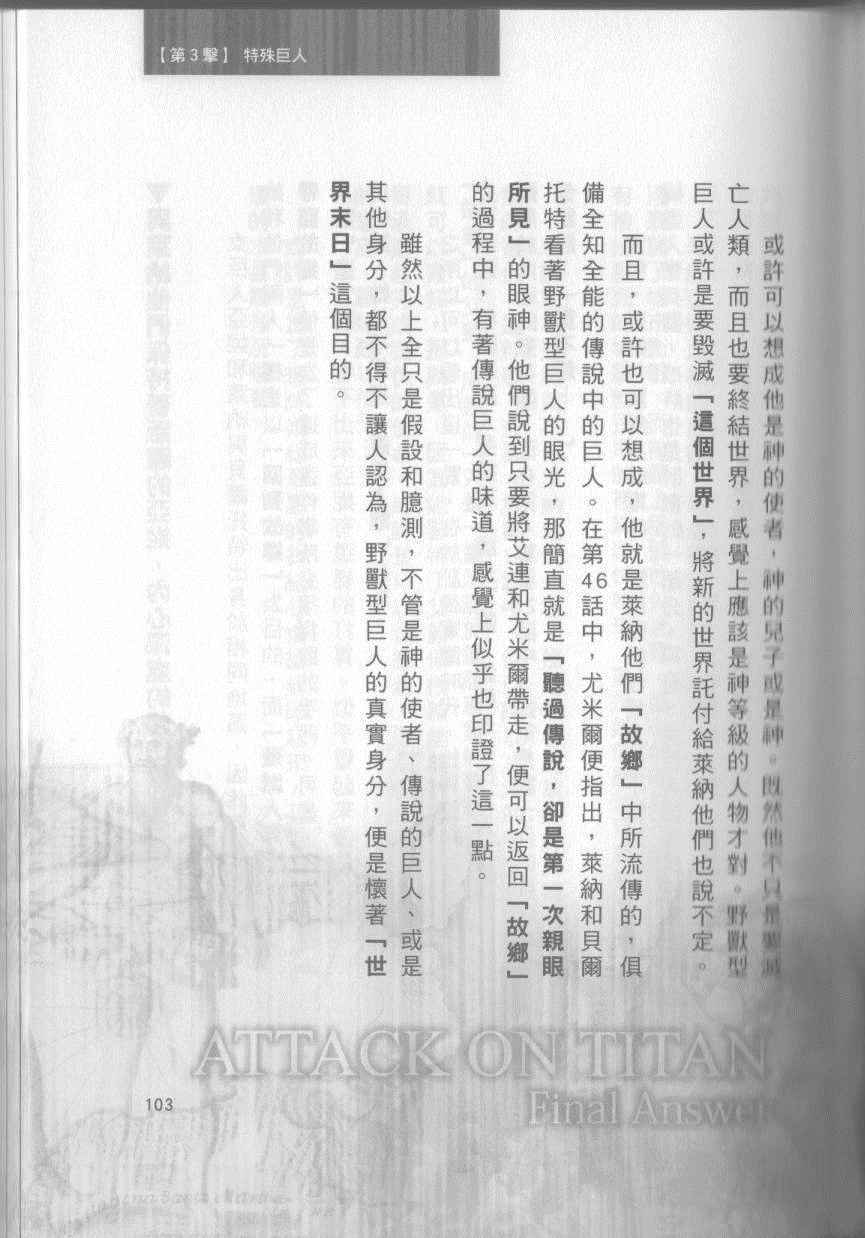 【第3擊】 特殊巨人
或許可以想成他是神的使者，神的兒子或是神。既然他不只是要滅
亡人類，而且也要終結世界，感覺上應該是神等級的人物才對。野獸型
巨人或許是要毀滅「這個世界」，將新的世界託付給萊納他們也說不定。
而且，或許也可以想成，他就是萊納他們「故鄉」中所流傳的，俱
備全知全能的傳說中的巨人。在第46話中，尤米爾便指出，萊納和貝爾
托特看著野獸型巨人的眼光，那簡直就是「聽過傳說，卻是第一次親眼
所見」的眼神。他們說到只要將艾連和尤米爾帶走，便可以返回「故鄉」
的過程中，有著傳說巨人的味道，感覺上似乎也印證了這一點。
雖然以上全只是假設和臆測，不管是神的使者、傳說的巨人、或是
其他身分，都不得不讓人認為，野獸型巨人的真實身分，便是懷著「世
界末日」這個目的。
ATTACK ON TITAN
Final Answer
103